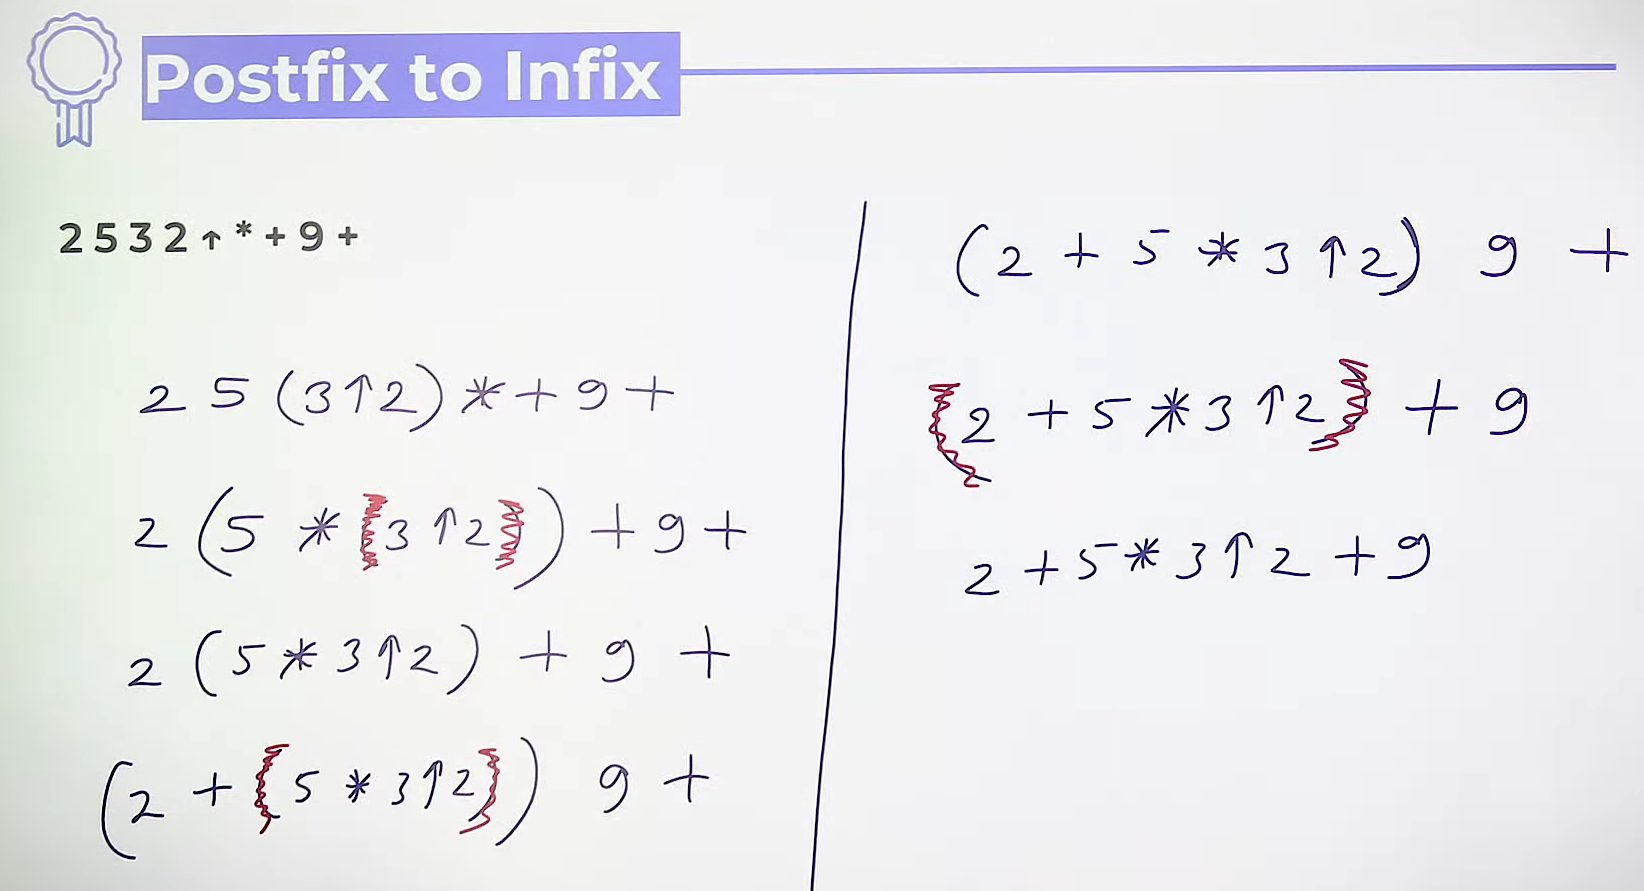 Postfix to Infix
2 5 3 2 ↑ * + 9 +
2 5 (3↑2) * + 9 +
2 (5 * (3 ↑ 2)) + 9 +
2 (5 * 3↑2) + 9 +
(2 + (5 * 3↑2)) 9 +
(2 + 5 * 3 ↑2) 9 +
(2 + 5 * 3 ↑2) + 9
2 + 5 * 3↑ 2 + 9